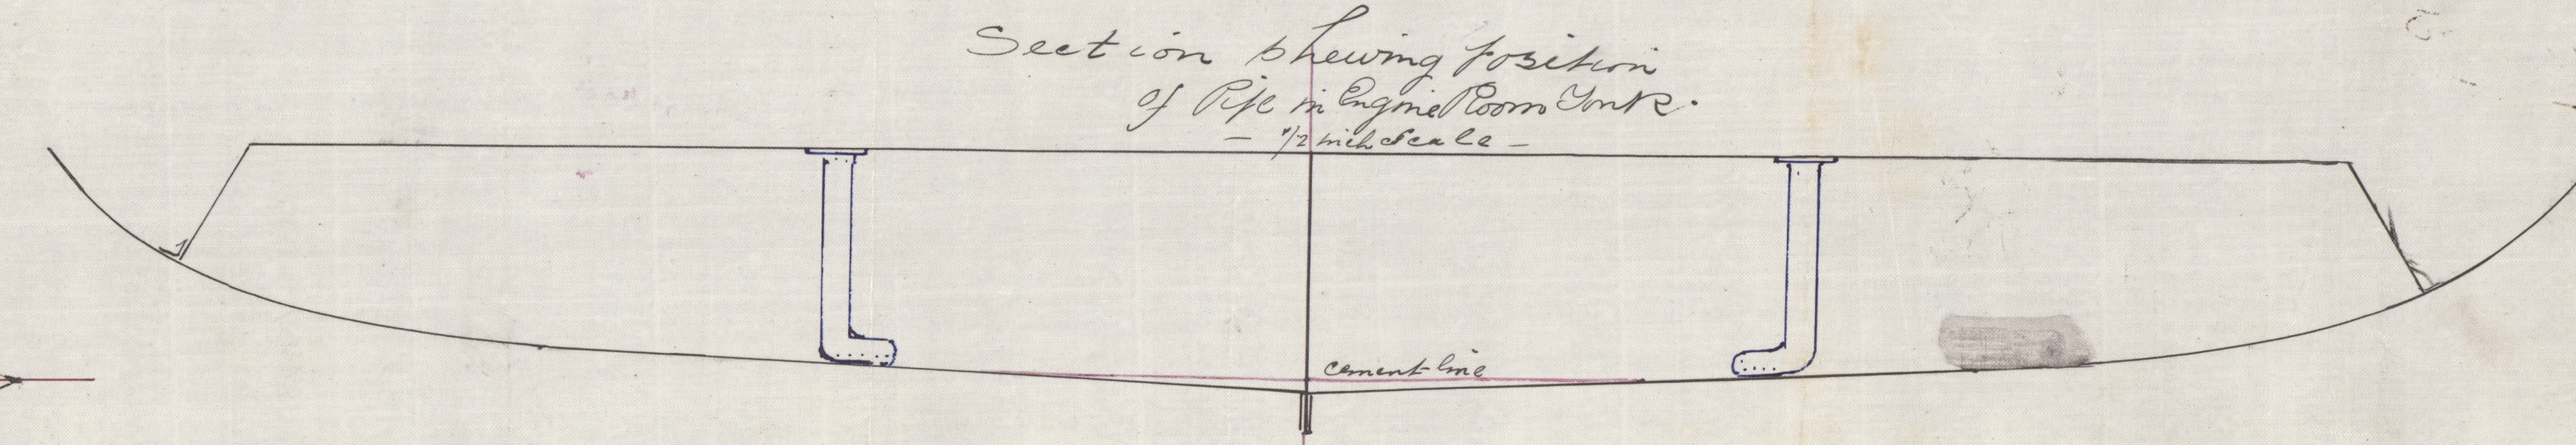 Section shewing position
of Pipe in Engine Room Tank.
— 1/2 inch Scale —
cement line